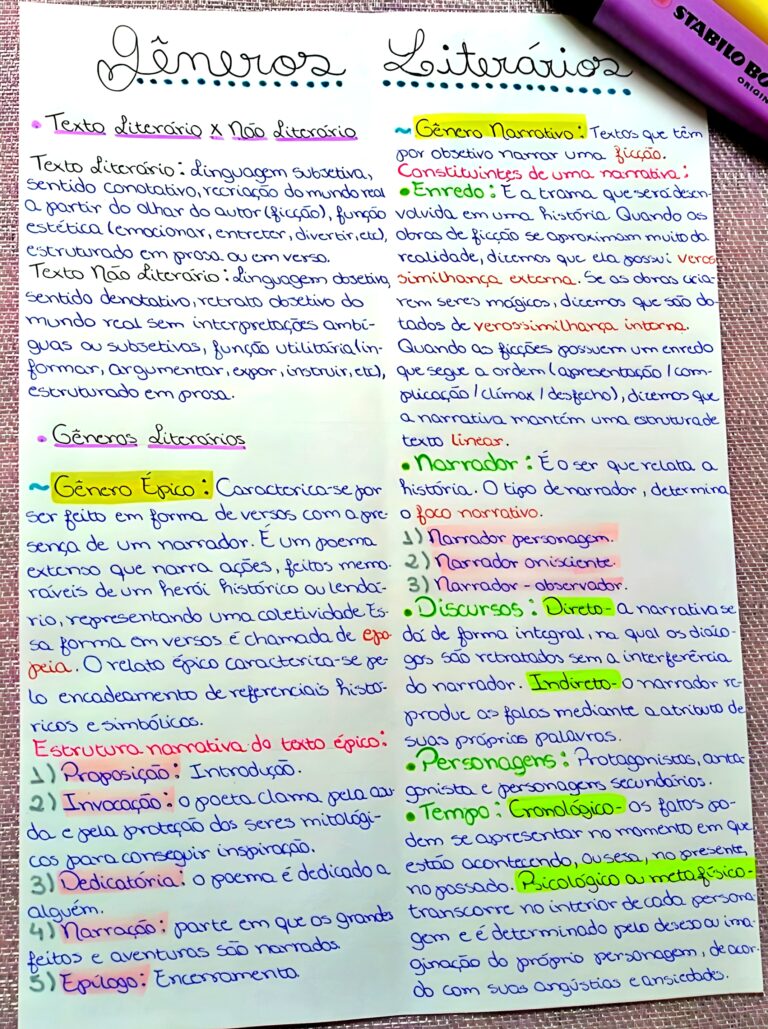 Gêneros Literários
STABILO BO
ORIGIN
• Texto Literário x Não Literário
Texto Literário: Linguagem subjetiva,
sentido conotativo, recriação do mundo real
a partir do olhar do autor (ficção), função
estética (emocionar, entreter, divertir, etc),
estruturado em prosa ou em verso.
Texto Não Literário: Linguagem objetiva,
sentido denotativo, retrato objetivo do
mundo real sem interpretações ambí-
guas ou subjetivas, função utilitária (in-
formar, argumentar, expor, instruir, etc),
estruturado em prosa.
• Gêneros Literários
~ Gênero Épico: Caracteriza-se por
ser feito em forma de versos com a pre-
sença de um narrador. É um poema
extenso que narra ações, feitos memo-
ráveis de um herói histórico ou lendá-
rio, representando uma coletividade. Es-
sa forma em versos é chamada de epo-
peia. O relato épico caracteriza-se pe-
lo encadeamento de referenciais histó-
ricos e simbólicos.
Estrutura narrativa do texto épico:
1) Proposição: Introdução.
2) Invocação: o poeta clama pela aju-
da e pela proteção dos seres mitológi-
cos para conseguir inspiração.
3) Dedicatória: o poema é dedicado a
alguém.
4) Narração: parte em que os grandes
feitos e aventuras são narrados.
5) Epílogo: Encerramento.
~ Gênero Narrativo: Textos que têm
por objetivo narrar uma ficção.
Constituintes de uma narrativa:
• Enredo: É a trama que será desen-
volvida em uma história. Quando as
obras de ficção se aproximam muito da
realidade, dizemos que ela possui veros-
similhança externa. Se as obras cria-
rem seres mágicos, dizemos que são do-
tados de verossimilhança interna.
Quando as ficções possuem um enredo
que segue a ordem (apresentação / com-
plicação / clímax / desfecho), dizemos que
a narrativa mantém uma estrutura de
texto linear.
• Narrador: É o ser que relata a
história. O tipo de narrador, determina
o foco narrativo.
1) Narrador personagem.
2) Narrador onisciente.
3) Narrador-observador.
• Discursos: Direto- a narrativa se
dá de forma integral, na qual os diálo-
gos são retratados sem a interferência
do narrador. Indireto- o narrador re-
produz as falas mediante a atributo de
suas próprias palavras.
• Personagens: Protagonistas, anta-
gonista e personagens secundários.
• Tempo: Cronológico- os fatos po-
dem se apresentar no momento em que
estão acontecendo, ou seja, no presente,
no passado. Psicológico ou metafísico-
transcorre no interior de cada persona-
gem e é determinado pelo desejo ou ima-
ginação do próprio personagem, de acor-
do com suas angústias e ansiedades.